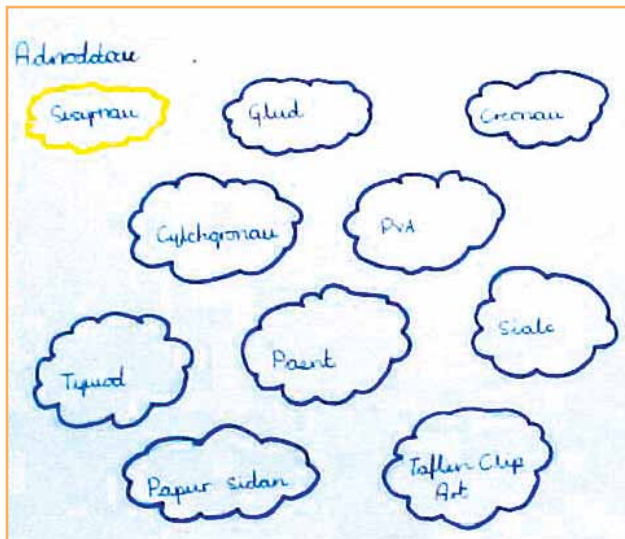 Adnoddau
Sisyrnau
Glud
Creonau
Cylchgronau
PVA
Tywod
Paent
Sialc
Papur sidan
Taflen Clip
Art